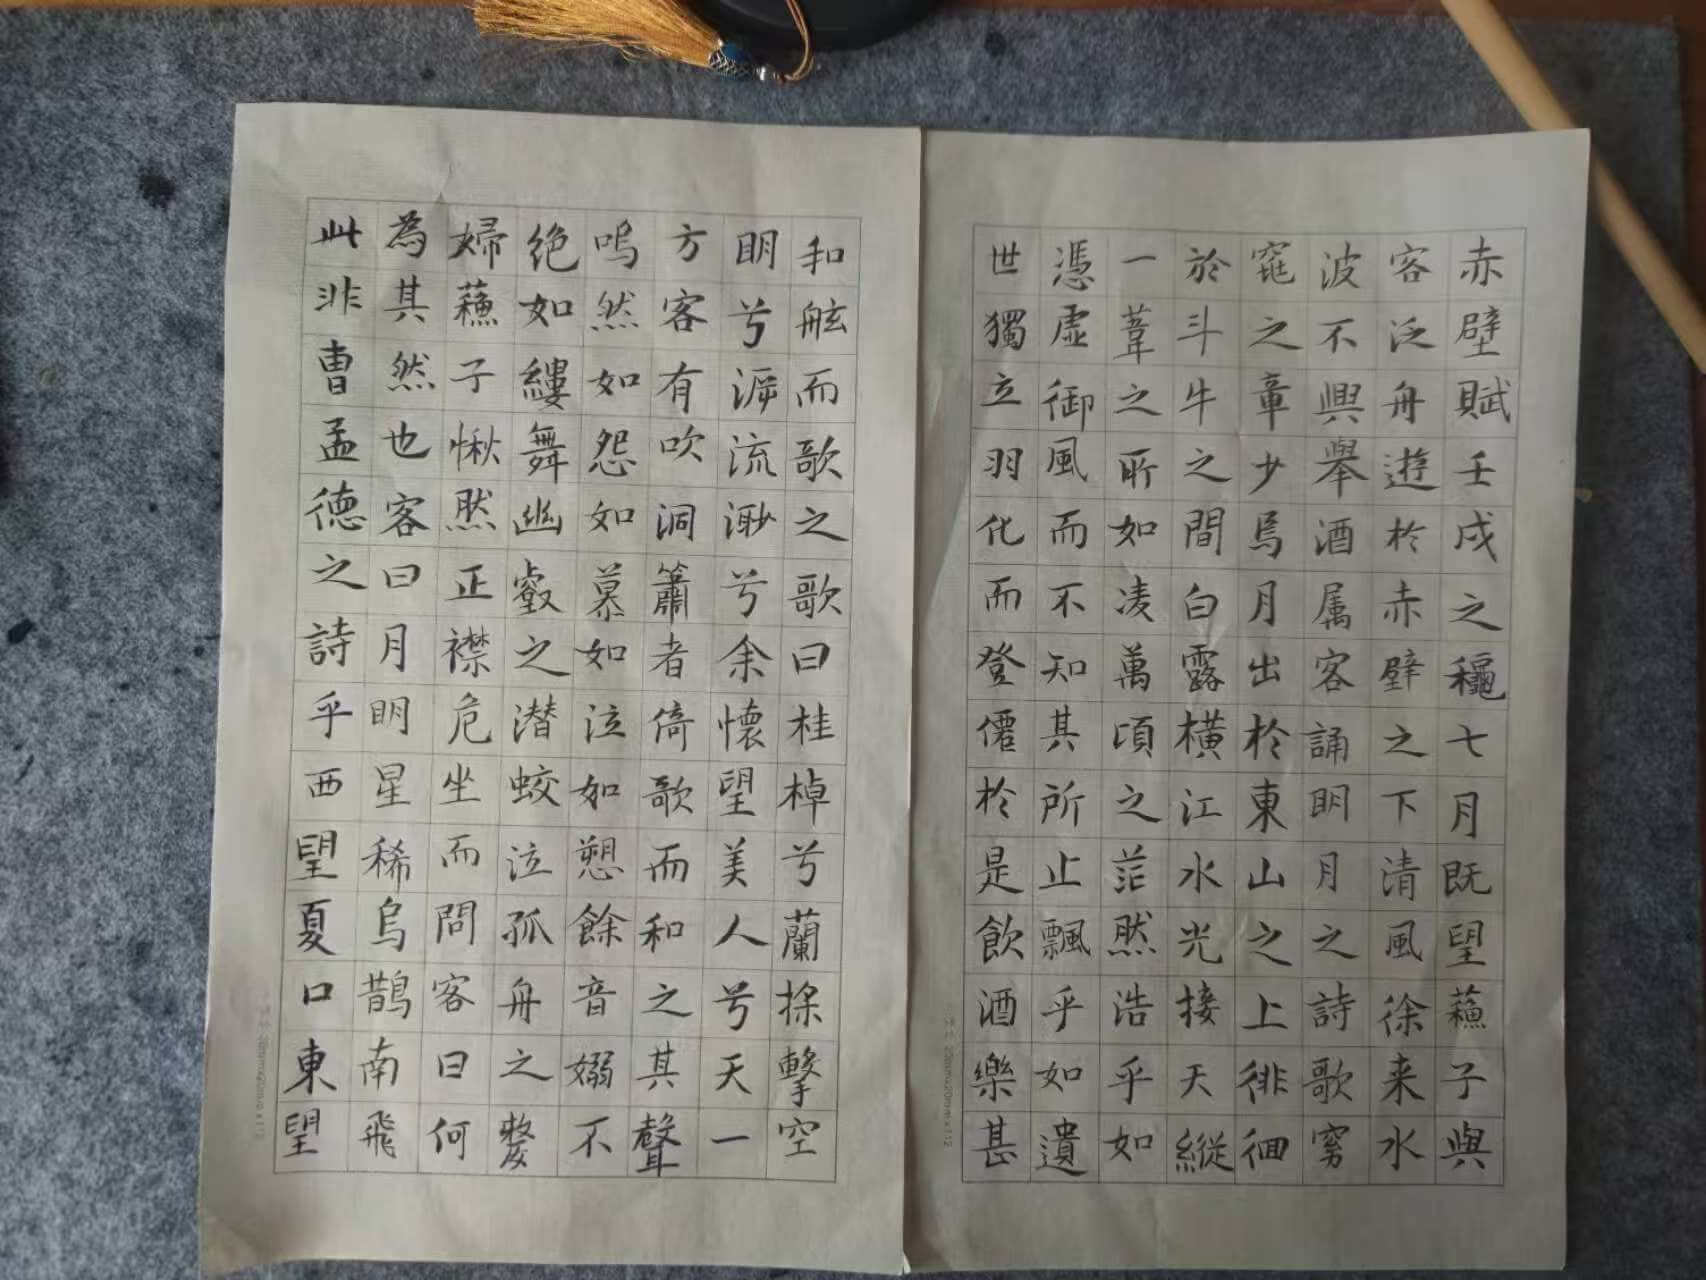 赤壁賦壬戌之龝七月既望蘇子與
客泛舟遊於赤壁之下清風徐来水
波不興舉酒属客誦明月之詩歌窈
窕之章少焉月出於東山之上徘徊
於斗牛之間白露横江水光接天縱
一葦之所如凌萬頃之茫然浩乎如
憑虛御風而不知其所止飄乎如遺
世獨立羽化而登僊於是飲酒樂甚
扣舷而歌之歌曰桂棹兮蘭槳擊空
明兮泝流渺兮余懷望美人兮天一
方客有吹洞簫者倚歌而和之其聲
嗚然如怨如慕如泣如愬餘音嫋不
绝如縷舞幽壑之潜蛟泣孤舟之嫠
婦蘇子愀然正襟危坐而問客曰何
為其然也客曰月明星稀烏鵲南飛
此非曹孟德之詩乎西望夏口東望